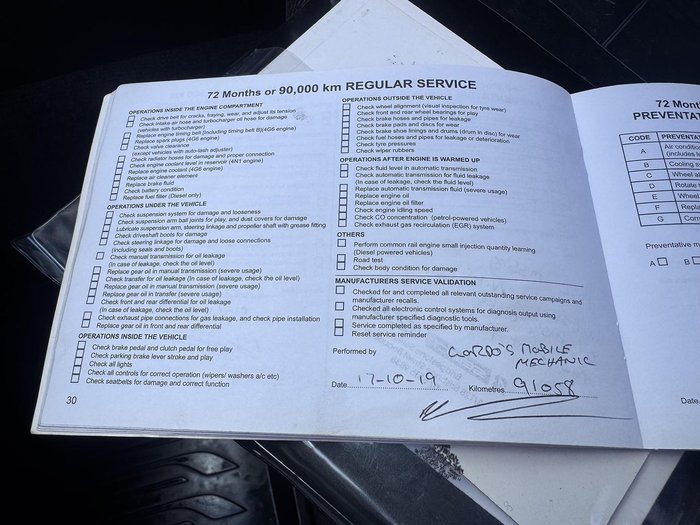 72 Months or 90,000 km REGULAR SERVICE
OPERATIONS INSIDE THE ENGINE COMPARTMENT
Check drive belt for cracks, fraying, wear, and adjust its tension
Check intake air hose and turbocharger oil hose for damage
(vehicles with turbocharger)
Replace engine timing belt (including timing belt B)(4G6 engine)
Replace spark plugs (4G6 engine)
Check valve clearance
(except vehicles with auto-lash adjuster)
Check radiator hoses for damage and proper connection
Check engine coolant level in reservoir (4N1 engine)
Replace engine coolant (4G6 engine)
Replace air cleaner element
Replace brake fluid
Check battery condition
Replace fuel filter (Diesel only)
OPERATIONS UNDER THE VEHICLE
Check suspension system for damage and looseness
Check suspension arm ball joints for play, and dust covers for damage
Lubricate suspension arm, steering linkage and propeller shaft with grease fitting
Check driveshaft boots for damage
Check steering linkage for damage and loose connections
(including seals and boots)
Check manual transmission for oil leakage
(In case of leakage, check the oil level)
Replace gear oil in manual transmission (severe usage)
Check transfer for oil leakage (In case of leakage, check the oil level)
Replace gear oil in manual transmission (severe usage)
Replace gear oil in transfer (severe usage)
Check front and rear differential for oil leakage
(In case of leakage, check the oil level)
Check exhaust pipe connections for gas leakage, and check pipe installation
Replace gear oil in front and rear differential
OPERATIONS INSIDE THE VEHICLE
Check brake pedal and clutch pedal for free play
Check parking brake lever stroke and play
Check all lights
Check all controls for correct operation (wipers/ washers a/c etc)
Check seatbelts for damage and correct function
30
OPERATIONS OUTSIDE THE VEHICLE
Check wheel alignment (visual inspection for tyre wear)
Check front and rear wheel bearings for play
Check brake hoses and pipes for leakage
Check brake pads and discs for wear
Check brake shoe linings and drums (drum in disc) for wear
Check fuel hoses and pipes for leakage or deterioration
Check tyre pressures
Check wiper rubbers
OPERATIONS AFTER ENGINE IS WARMED UP
Check fluid level in automatic transmission
Check automatic transmission for fluid leakage
(In case of leakage, check the fluid level)
Replace automatic transmission fluid (severe usage)
Replace engine oil
Replace engine oil filter
Check engine idling speed
Check CO concentration (petrol-powered vehicles)
Check exhaust gas recirculation (EGR) system
OTHERS
Perform common rail engine small injection quantity learning
(Diesel powered vehicles)
Road test
Check body condition for damage
MANUFACTURERS SERVICE VALIDATION
Checked for and completed all relevant outstanding service campaigns and
manufacturer recalls.
Checked all electronic control systems for diagnosis output using
manufacturer specified diagnostic tools.
Service completed as specified by manufacturer.
Reset service reminder
Performed by GORDO'S MOBILE
MECHANIC
Date 17-10-19 Kilometres 91058
72 Mont
PREVENTA
CODE PREVENTA
A Air condition
(includes
B Cooling s
C Wheel al
D Rotate
E Wheel
F Repla
G Con
Preventative
A B
Date